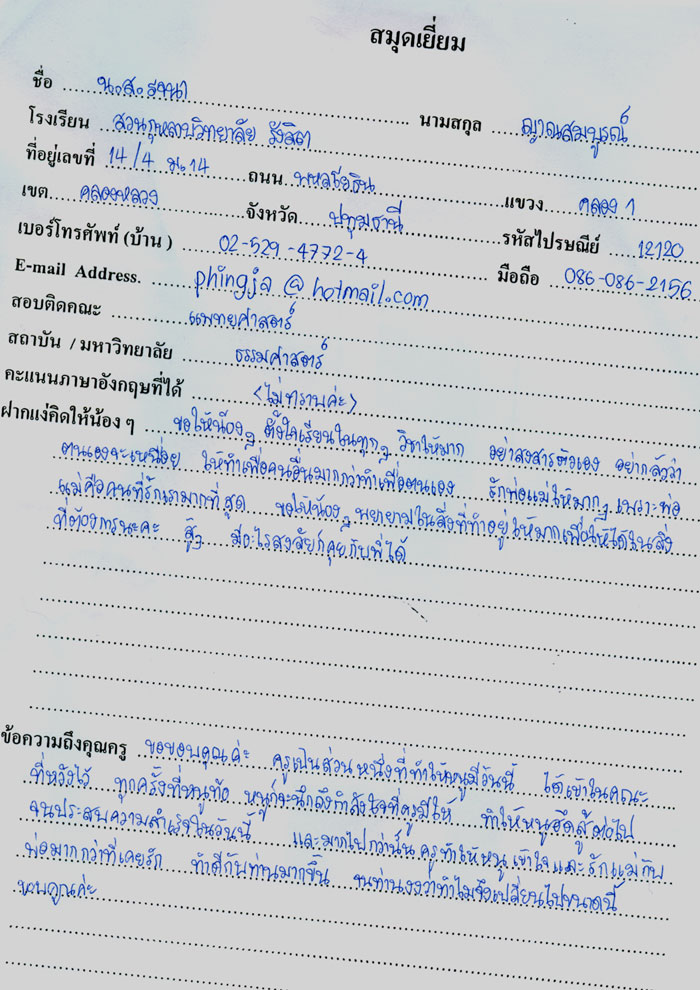 สมุดเยี่ยม
ชื่อ น.ส. รจนา นามสกุล ญาณสมบูรณ์
โรงเรียน สวนกุหลาบวิทยาลัย รังสิต
ที่อยู่เลขที่ 14/4 ม.14 ถนน พหลโยธิน แขวง คลอง 1
เขต คลองหลวง จังหวัด ปทุมธานี รหัสไปรษณีย์ 12120
เบอร์โทรศัพท์ (บ้าน) 02-529-4772-4 มือถือ 086-086-2156
E-mail Address. phingja@hotmail.com
สอบติดคณะ แพทยศาสตร์
สถาบัน / มหาวิทยาลัย ธรรมศาสตร์
คะแนนภาษาอังกฤษที่ได้ <ไม่ทราบค่ะ>
ฝากแง่คิดให้น้อง ๆ ขอให้น้องๆ ตั้งใจเรียนในทุกๆ วิชาให้มาก อย่าสงสารตัวเอง อย่ากลัวว่า
ตนเองจะเหนื่อย ให้ทำเพื่อคนอื่นมากกว่าทำเพื่อตนเอง รักพ่อแม่ให้มากๆ เพราะพ่อ
แม่คือคนที่รักเรามากที่สุด ขอให้น้องๆ พยายามในสิ่งที่ทำอยู่ให้มากเพื่อให้ได้ในสิ่ง
ที่ต้องการนะคะ สู้ๆ มีอะไรสงสัยก็คุยกับพี่ได้
ข้อความถึงคุณครู ขอขอบคุณค่ะ ครูเป็นส่วนหนึ่งที่ทำให้หนูมีวันนี้ ได้เข้าในคณะ
ที่หวังไว้ ทุกครั้งที่หนูท้อ หนูก็จะนึกถึงกำลังใจที่ครูมีให้ ทำให้หนูฮึดสู้ต่อไป
จนประสบความสำเร็จในวันนี้ และมากไปกว่านั้น ครูทำให้หนูเข้าใจและรักแม่กับ
พ่อมากกว่าที่เคยรัก ทำดีกับท่านมากขึ้น จนท่านงงว่าทำไมจึงเปลี่ยนไปขนาดนี้
ขอบคุณค่ะ